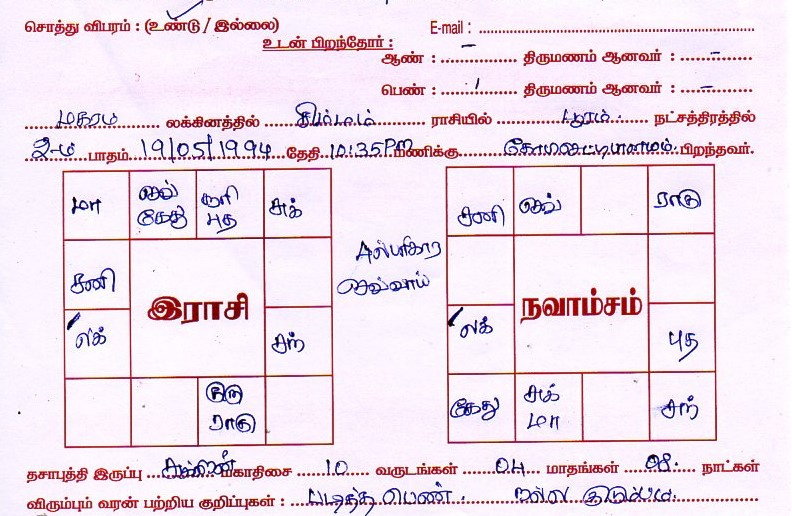 சொத்து விபரம் : (உண்டு / இல்லை) E-mail :
உடன் பிறந்தோர் :
ஆண் : - திருமணம் ஆனவர் : -
பெண் : 1 திருமணம் ஆனவர் : -
மகரம் லக்கினத்தில் சிம்மம் ராசியில் பூரம். நட்சத்திரத்தில்
2-ம் பாதம் 19/05/1994 தேதி 10:35 PM மணிக்கு பிறந்தவர்.
மா செவ் கேது சூரி புத சுக்
சனி
லக் சந்
குரு ராகு
இராசி
செவ்வாய்
சனி செவ் ராகு
லக் புத
கேது சுக் மா சந்
நவாம்சம்
தசாபுத்தி இருப்பு சுக்கிரன் மகாதிசை 10 வருடங்கள் 04 மாதங்கள் 08. நாட்கள்
விரும்பும் வரன் பற்றிய குறிப்புகள் : படித்த பெண். நல்ல குடும்பம்.